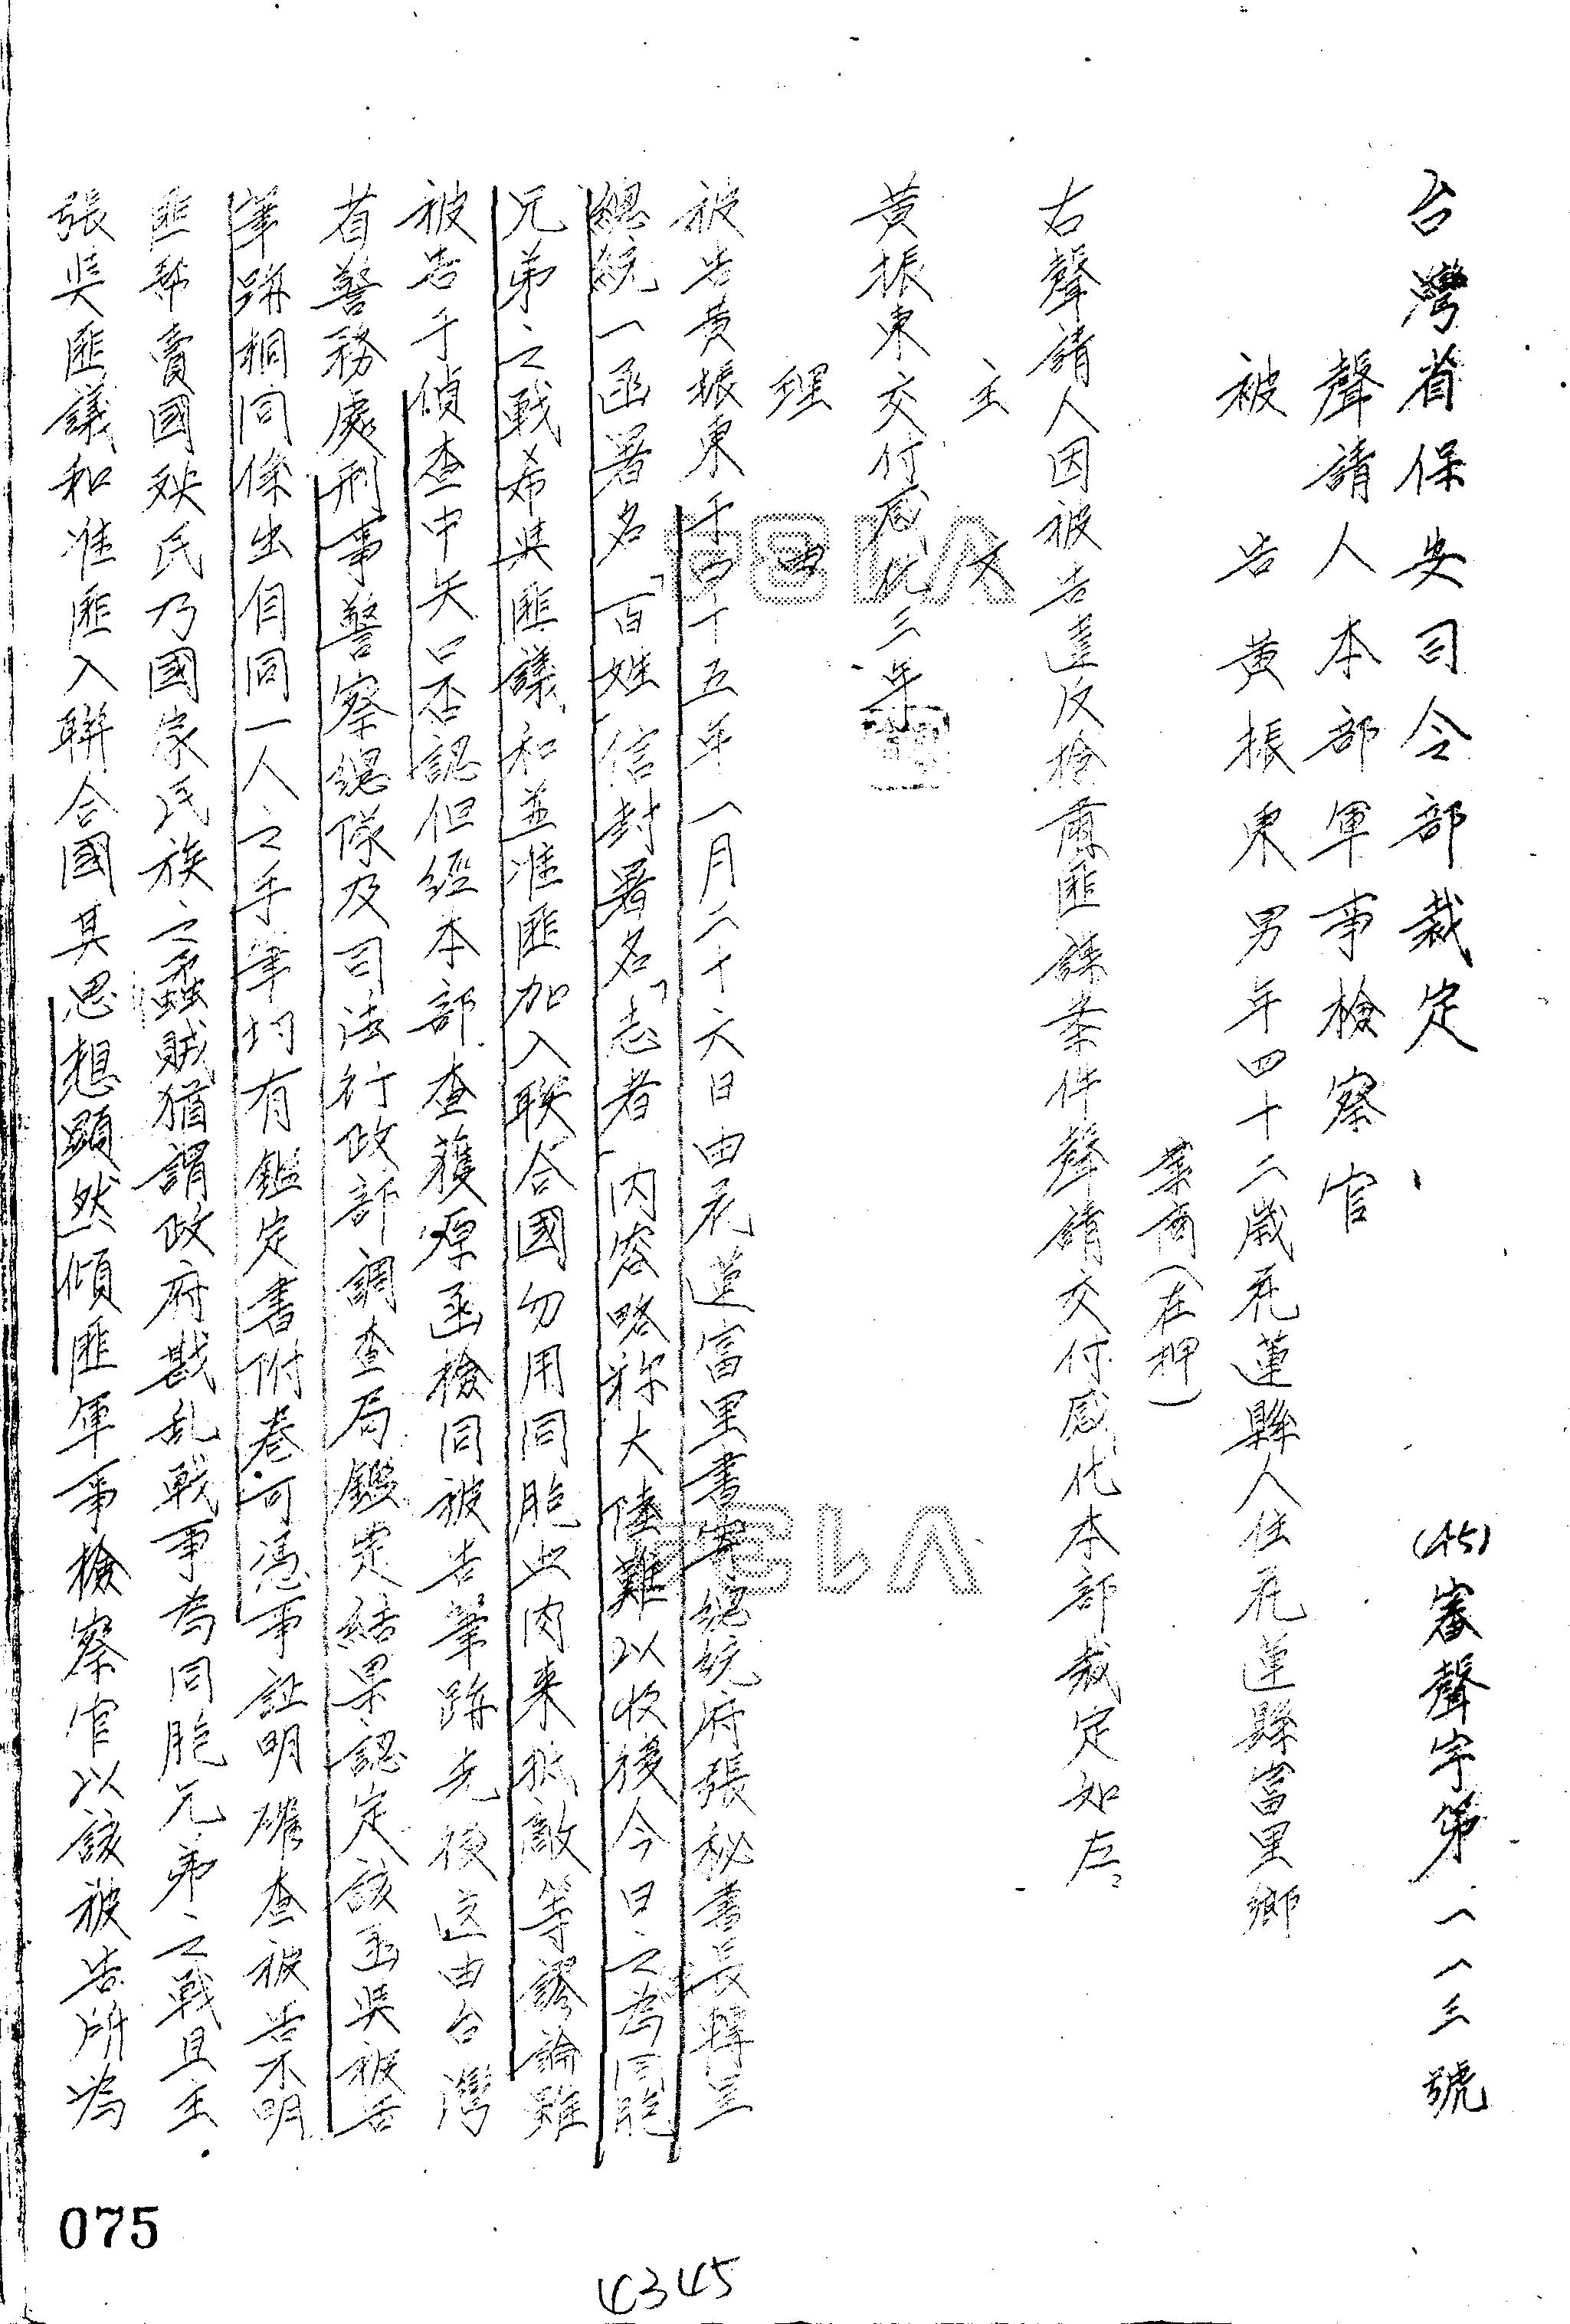 台灣省保安司令部裁定
(45)審聲字第一一三號
聲請人本部軍事檢察官
被告黃振東男年四十二歲花蓮縣人住花蓮縣富里鄉
業商(在押)
右聲請人因被告違反檢肅匪諜案件聲請交付感化本部裁定如左。
主文
黃振東交付感化三年
理由
被告黃振東于四十五年一月二十六日由花蓮富里書寄總統府張秘書長轉呈
總統一函署名「百姓」信封署名「志者」內容略称大陸難以收復今日之為同胞
兄弟之戰希與匪議和並准匪加入联合國勿用同胞血肉来抵敵等謬論雖
被告于偵查中矢口否認但經本部查獲原函檢同被告筆跡先後送由台灣
省警務處刑事警察總隊及司法行政部調查局鑑定結果認定該函與被告
筆跡相同係出自同一人之手筆均有鑑定書附卷可憑事証明確查被告不明
匪幫賣國殃民乃國家民族之蟊賊猶謂政府戡乱戰事為同胞兄弟之戰且主
張與匪議和准匪入聯合國其思想顯然傾匪軍事檢察官以該被告所為
075
4345